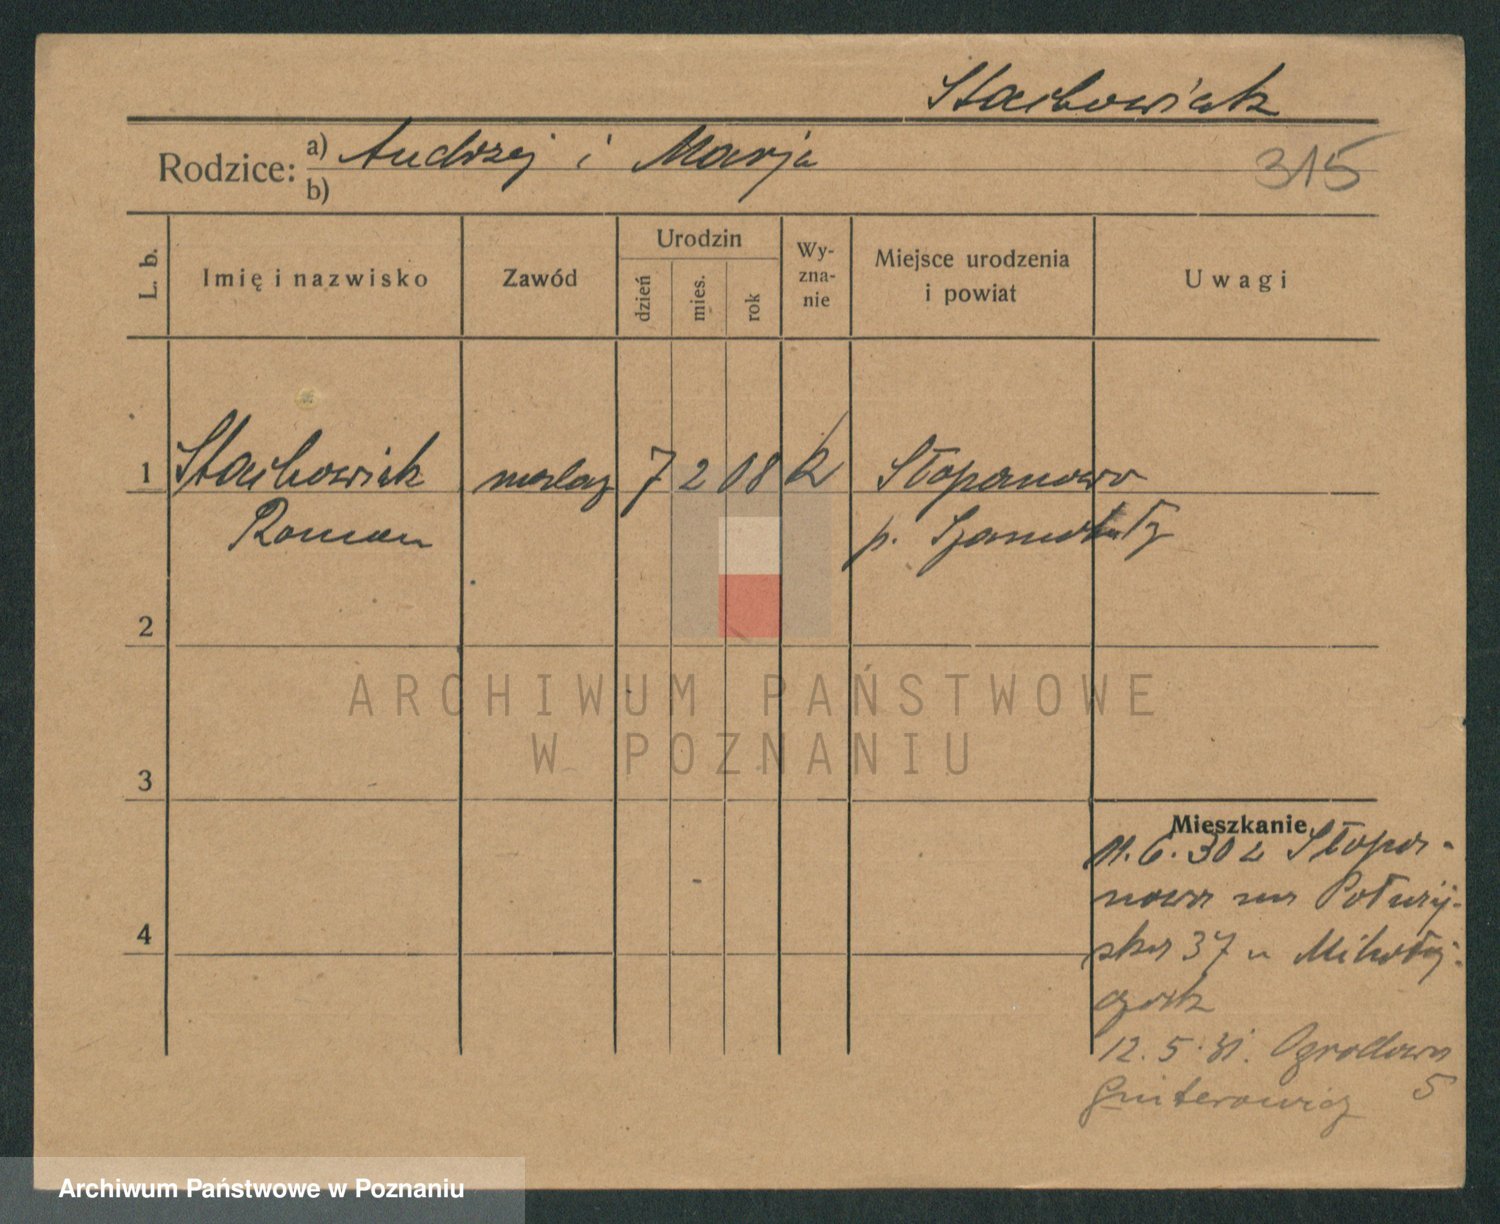 Stachowiak
Rodzice: a) Andrzej i Marja
b)
315
L. b.
Imię i nazwisko
Zawód
Urodzin
dzień
mies.
rok
Wy-
zna-
nie
Miejsce urodzenia
i powiat
Uwagi
1 Stachowiak malarz 7 2 08 k Stopanowo
Roman p. Szamotuły
2
3
4
Mieszkanie
11.6.30 z
37 u
12.5.31. Ogrodowa
5
ARCHIWUM PAŃSTWOWE
W POZNANIU
Archiwum Państwowe w Poznaniu